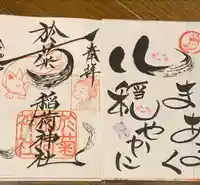 まあるく
心穏やかに
奉拝
於菊
稲荷神社